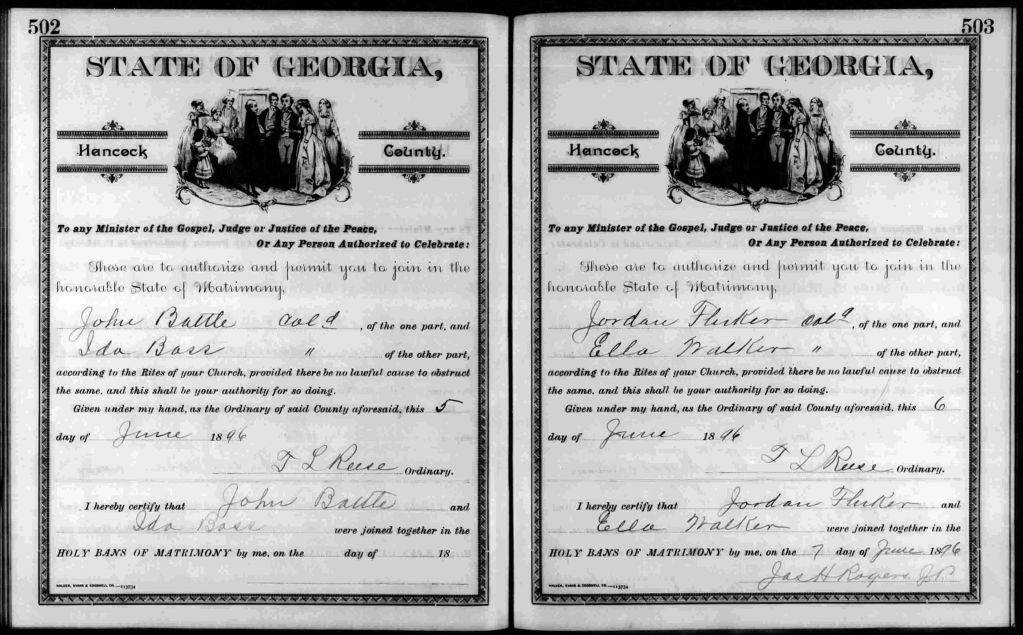 502
STATE OF GEORGIA,
Hancock County.
To any Minister of the Gospel, Judge or Justice of the Peace,
Or Any Person Authorized to Celebrate:
These are to authorize and permit you to join in the
honorable State of Matrimony,
John Battle Cold, of the one part, and
Ida Bass " of the other part,
according to the Rites of your Church, provided there be no lawful cause to obstruct
the same, and this shall be your authority for so doing.
Given under my hand, as the Ordinary of said County aforesaid, this 5
day of June 1896
T L Reese Ordinary.
I hereby certify that John Battle and
Ida Bass were joined together in the
HOLY BANS OF MATRIMONY by me, on the day of 18
WALKER, EVANS & COGSWELL CO.—113734
503
STATE OF GEORGIA,
Hancock County.
To any Minister of the Gospel, Judge or Justice of the Peace,
Or Any Person Authorized to Celebrate:
These are to authorize and permit you to join in the
honorable State of Matrimony,
Jordan Fluker Cold, of the one part, and
Ella Walker " of the other part,
according to the Rites of your Church, provided there be no lawful cause to obstruct
the same, and this shall be your authority for so doing.
Given under my hand, as the Ordinary of said County aforesaid, this 6
day of June 1896
T L Reese Ordinary.
I hereby certify that Jordan Fluker and
Ella Walker were joined together in the
HOLY BANS OF MATRIMONY by me, on the 7 day of June 1896
Jas H Rogers J.P.
WALKER, EVANS & COGSWELL CO.—113734